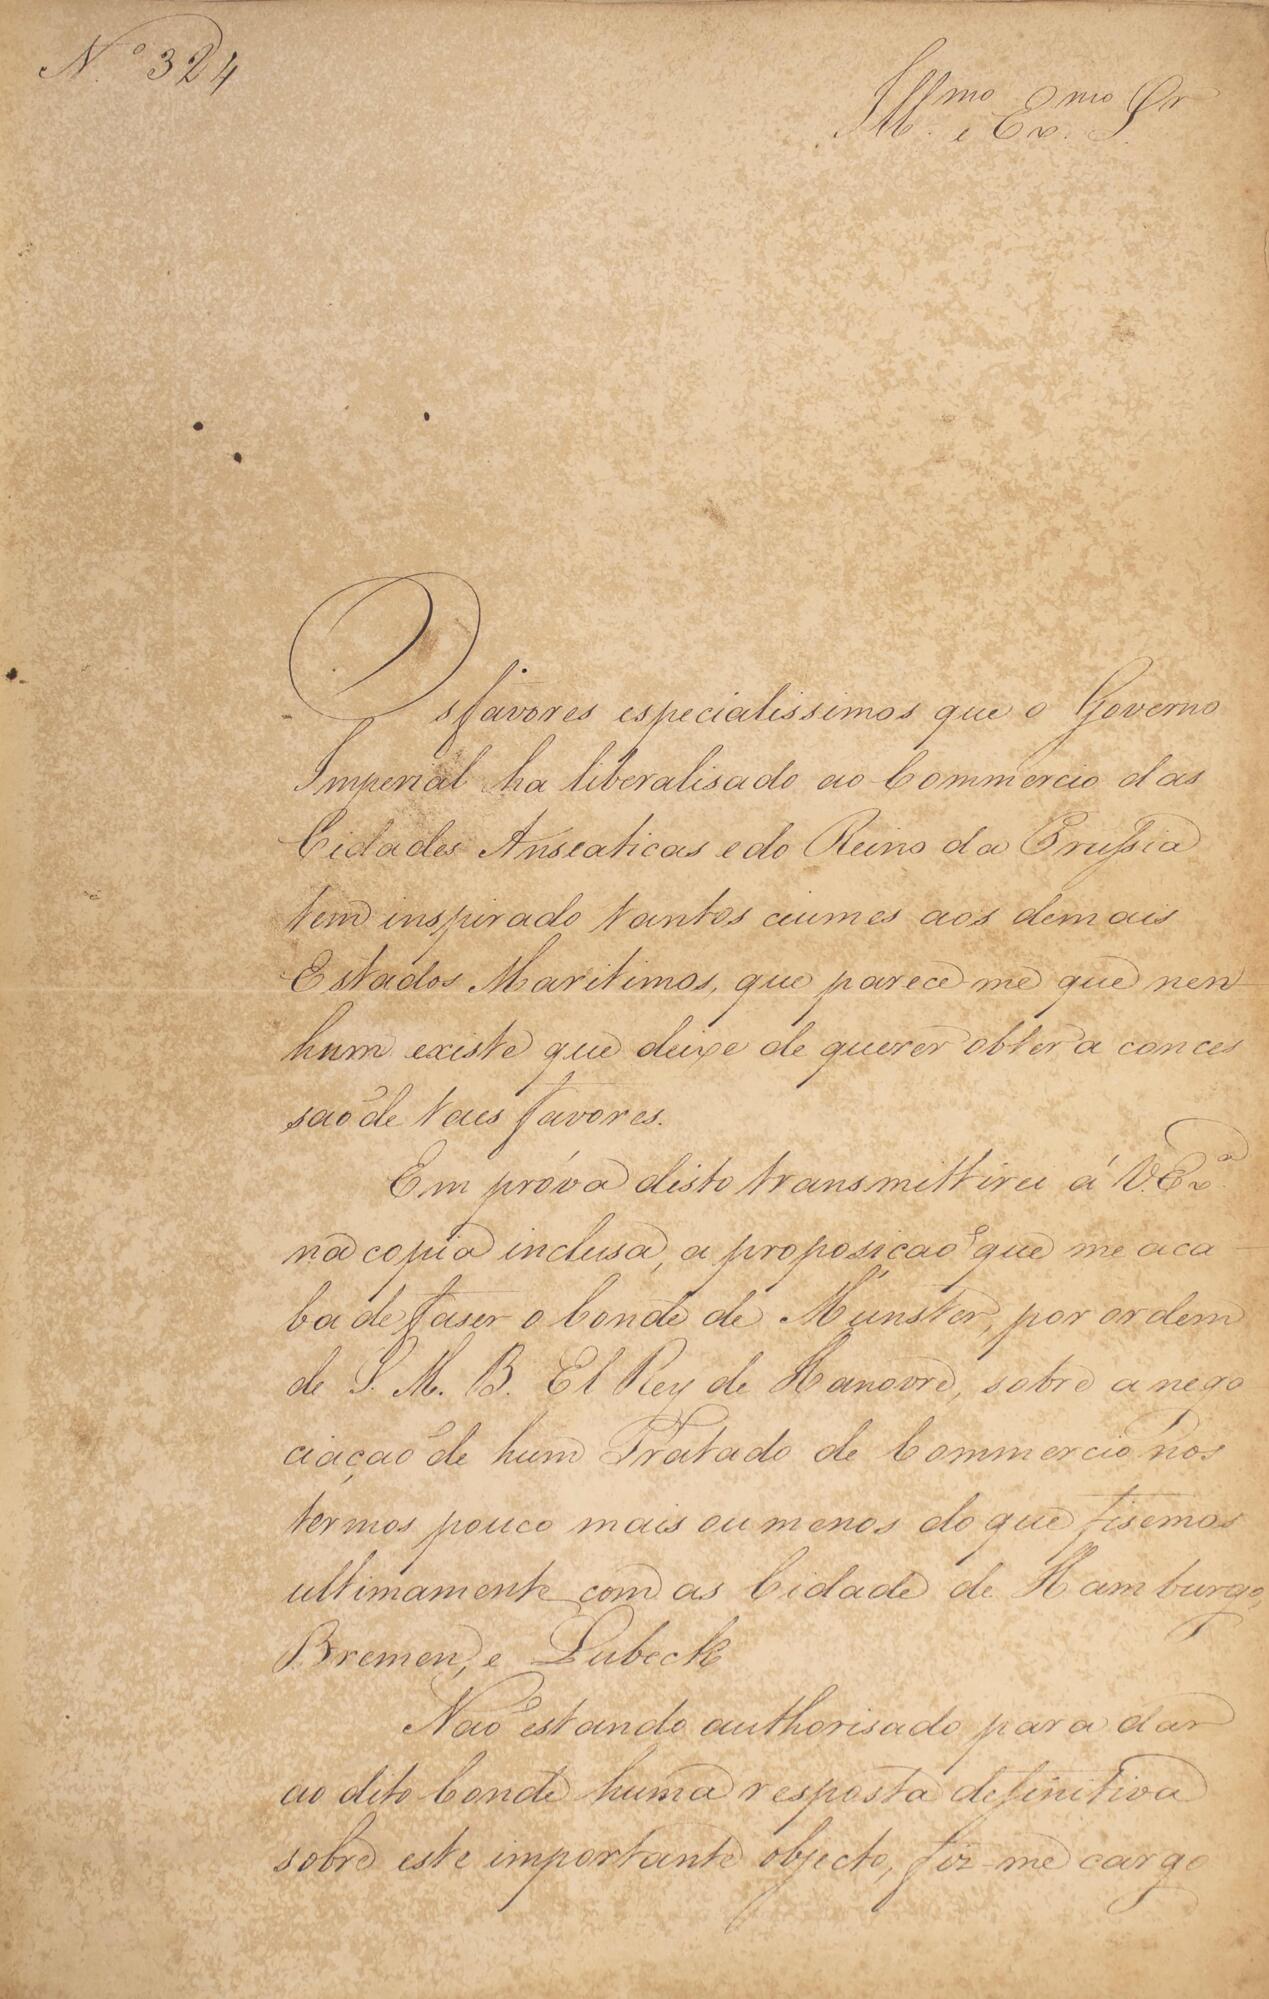 N.º 324
Ill.mo e Ex.mo Sr.
Os favores especialissimos que o Governo
Imperial ha liberalisado ao Commercio das
Cidades Anseaticas e do Reino da Prussia
tem inspirado tantos ciumes aos demais
Estados Maritimos, que parece-me que nen-
hum existe que deixe de querer obter a conces
saõ de taes favores.
Em próva disto transmittirei á V. Ex.ª
na copia inclusa, a proposiçaõ que me aca-
ba de faser o Conde de Münster, por ordem
de S. M. B. El Rey de Hanovre, sobre a nego
ciaçaõ de hum Tratado de Commercio nos
termos pouco mais ou menos do que fisemos
ultimamente com as Cidade de Hamburgo,
Bremen, e Lubeck
Naõ estando authorisado para dar
ao dito Conde huma resposta definitiva
sobre este importante objecto, fiz-me cargo